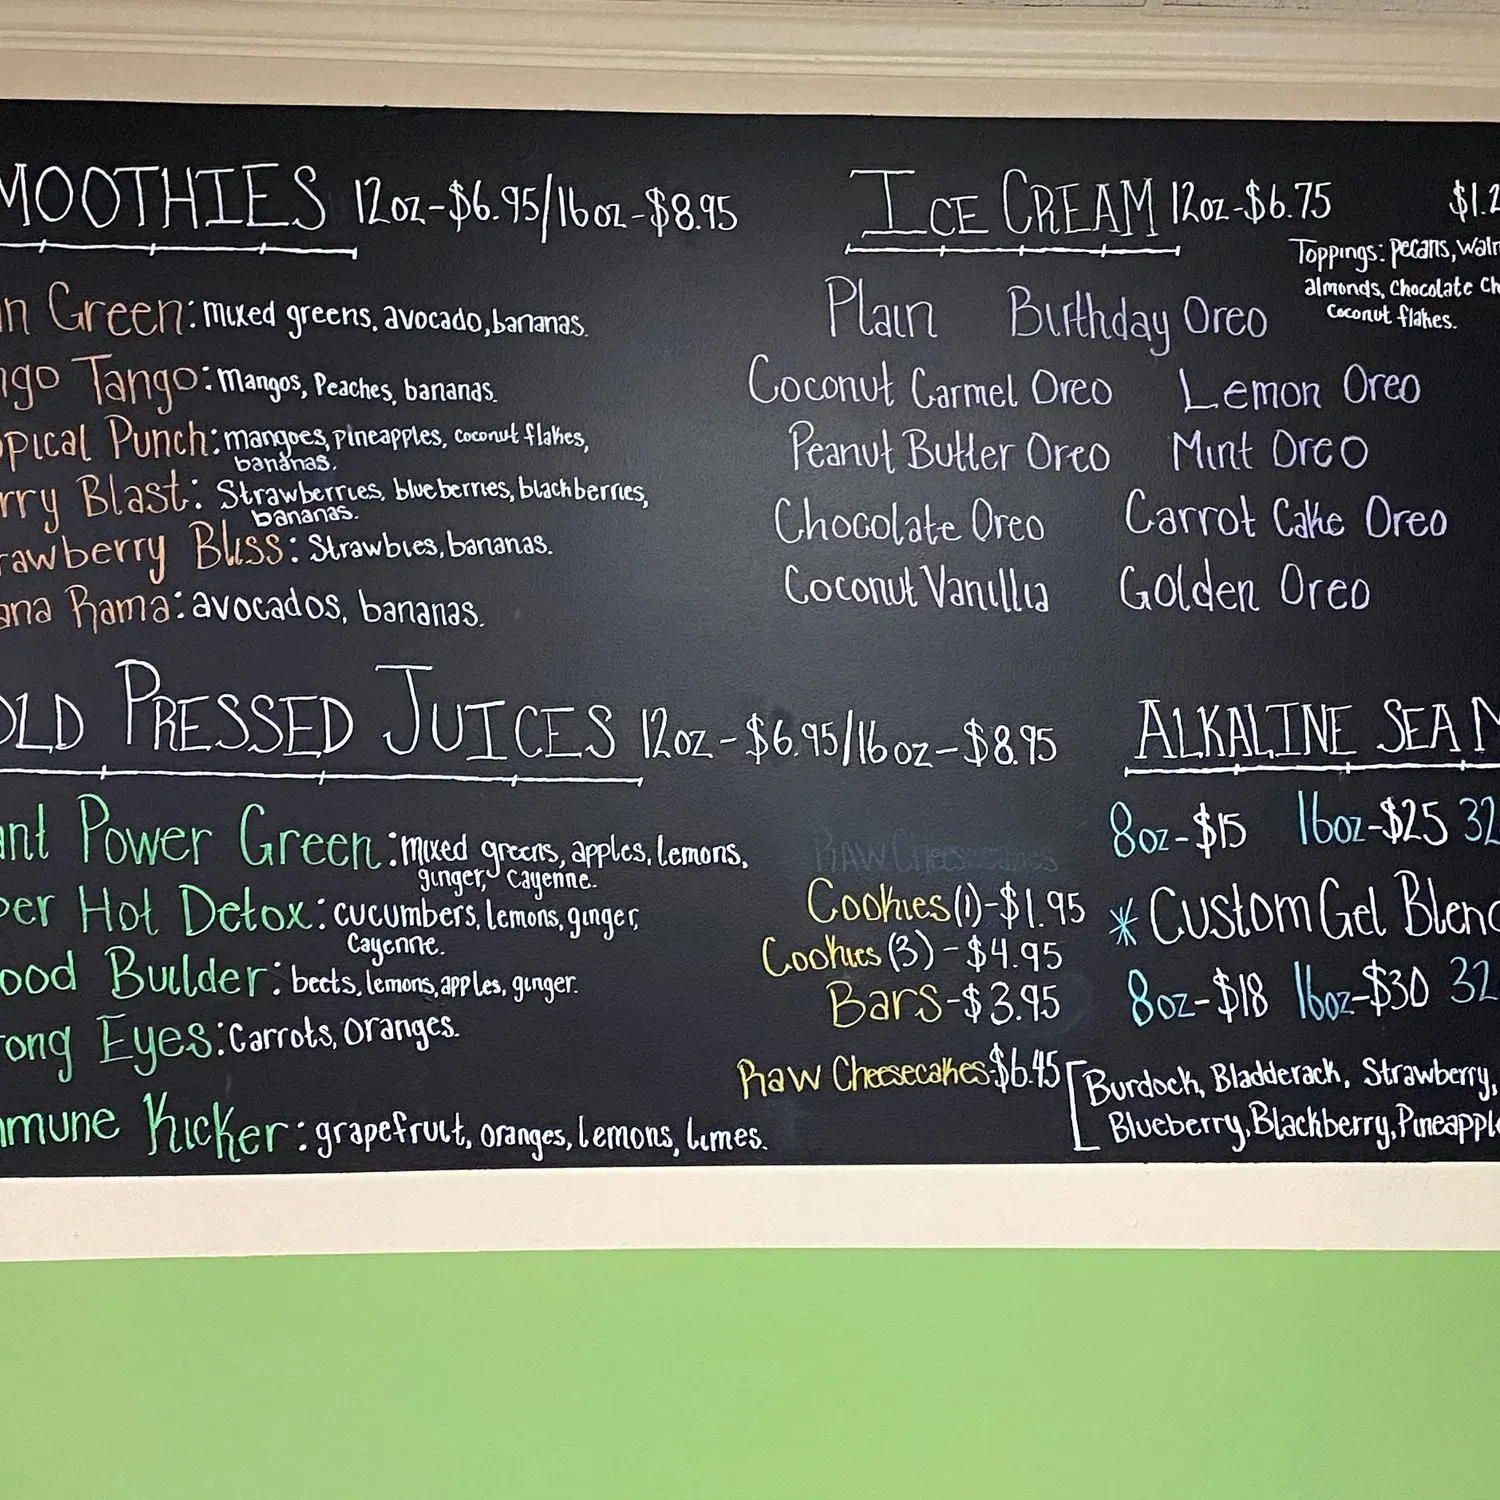 MOOTHIES 12oz-$6.95/16oz-$8.95
n Green: mixed greens, avocado, bananas.
ngo Tango: Mangos, Peaches, bananas.
pical Punch: mangoes, pineapples, coconut flakes,
bananas.
rry Blast: Strawberries, blueberries, blackberries,
bananas.
rawberry Bliss: Strawbies, bananas.
ana Rama: avocados, bananas.
OLD PRESSED JUICES 12oz-$6.95/16oz-$8.95
ant Power Green: mixed greens, apples, lemons,
ginger, Cayenne.
per Hot Detox: cucumbers, lemons, ginger,
Cayenne.
ood Builder: beets, lemons, apples, ginger.
rong Eyes: Carrots, oranges.
mmune Kicker: grapefruit, oranges, lemons, limes.
ICE CREAM 12oz-$6.75
$1.2
Toppings: pecans, waln
almonds, Chocolate Ch
coconut flakes.
Plain Birthday Oreo
Coconut Carmel Oreo Lemon Oreo
Peanut Butter Oreo Mint Oreo
Chocolate Oreo Carrot Cake Oreo
Coconut Vanilla Golden Oreo
RAW Cheesecakes
Cookies (1)-$1.95
Cookies (3)-$4.95
Bars-$3.95
Raw Cheesecakes-$6.45
ALKALINE SEA M
8oz-$15 16oz-$25 32
*Custom Gel Blend
8oz-$18 16oz-$30 32
[Burdock, Bladderack, Strawberry,
Blueberry, Blackberry, Pineapple